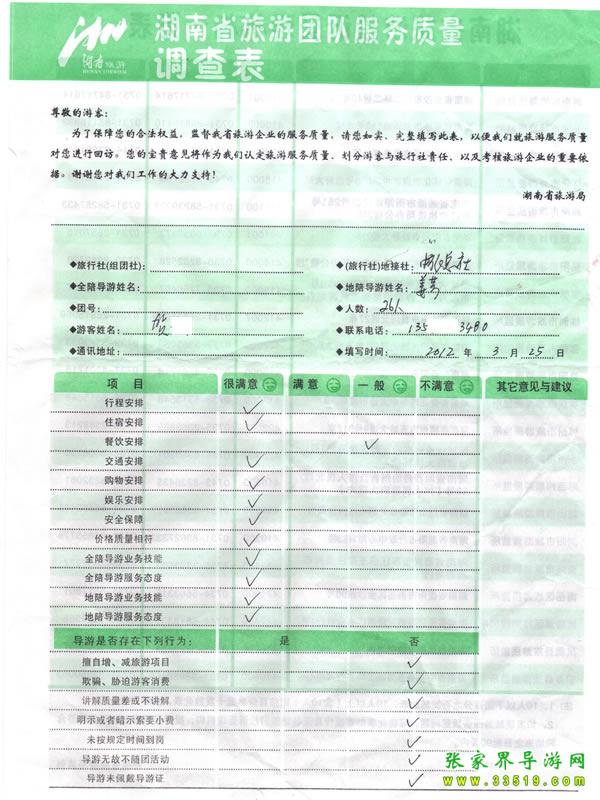 湖南省旅游团队服务质量
调查表
湖南旅游
HUNAN TOURISM
尊敬的游客:
为了保障您的合法权益，监督我省旅游企业的服务质量，请您如实、完整填写此表，以便我们就旅游服务质量
对您进行回访。您的宝贵意见将作为我们认定旅游服务质量、划分游客与旅行社责任、以及考核旅游企业的重要依
据。谢谢您对我们工作的大力支持!
湖南省旅游局
◆旅行社(组团社): ◆(旅行社)地接社:
◆全陪导游姓名: ◆地陪导游姓名:
◆团号: ◆人数: 26人
◆游客姓名: ◆联系电话: 135 3480
◆通讯地址: ◆填写时间: 2012 年 3 月 25 日
项 目 很满意 满 意 一 般 不满意 其它意见与建议
行程安排 ✓
住宿安排 ✓
餐饮安排 ✓
交通安排 ✓
购物安排 ✓
娱乐安排 ✓
安全保障 ✓
价格质量相符 ✓
全陪导游业务技能 ✓
全陪导游服务态度 ✓
地陪导游业务技能 ✓
地陪导游服务态度 ✓
导游是否存在下列行为: 是 否
擅自增、减旅游项目 ✓
欺骗、胁迫游客消费 ✓
讲解质量差或不讲解 ✓
明示或者暗示索要小费 ✓
未按规定时间到岗 ✓
导游无故不随团活动 ✓
导游未佩戴导游证 ✓
张家界导游网
www.33519.com